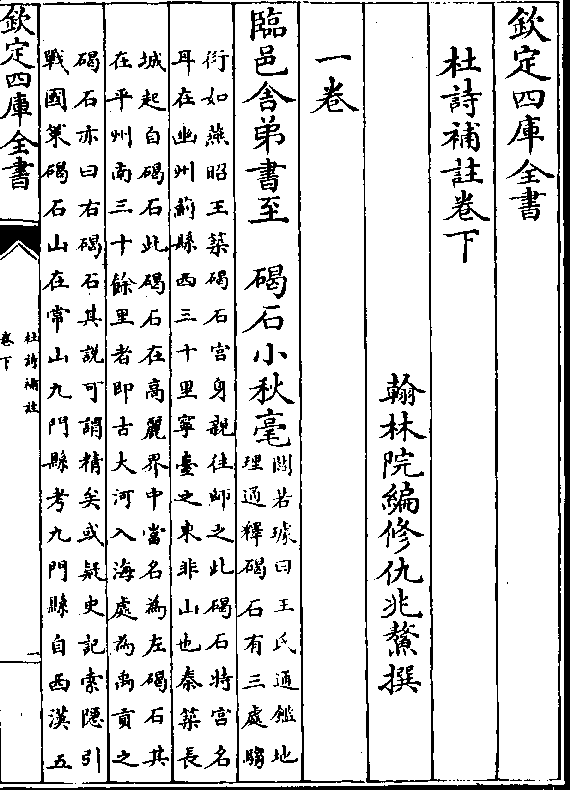 欽定四庫全書
杜詩補註卷下
翰林院編修仇兆鰲撰
一卷
臨邑舍弟書至　碣石小秋毫
閻若璩曰王氏通鑑地
理通釋碣石有三處騶
衍如燕昭王築碣石宫身親往師之此碣石特宫名
耳在幽州薊縣西三十里寧臺之東非山也秦築長
城起自碣石此碣石在高麗界中當名為左碣石其
在平州南三十餘里者即古大河入海處為禹貢之
碣石亦曰右碣石其說可謂精矣或疑史記索隱引
戰國策碣石山在常山九門縣考九門縣自西漢五
欽定四庫全書
杜詩補註
卷下
一